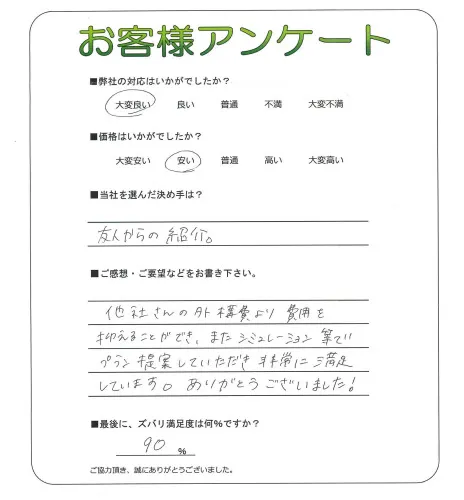 お客様アンケート
■弊社の対応はいかがでしたか？
大変良い 良い 普通 不満 大変不満
■価格はいかがでしたか？
大変安い 安い 普通 高い 大変高い
■当社を選んだ決め手は？
友人からの紹介。
■ご感想・ご要望などをお書き下さい。
他社さんの外構費より費用を
抑えることができ、またシミュレーション等で
プラン提案していただき非常に満足
しています。ありがとうございました！
■最後に、ズバリ満足度は何%ですか？
90 %
ご協力頂き、誠にありがとうございました。